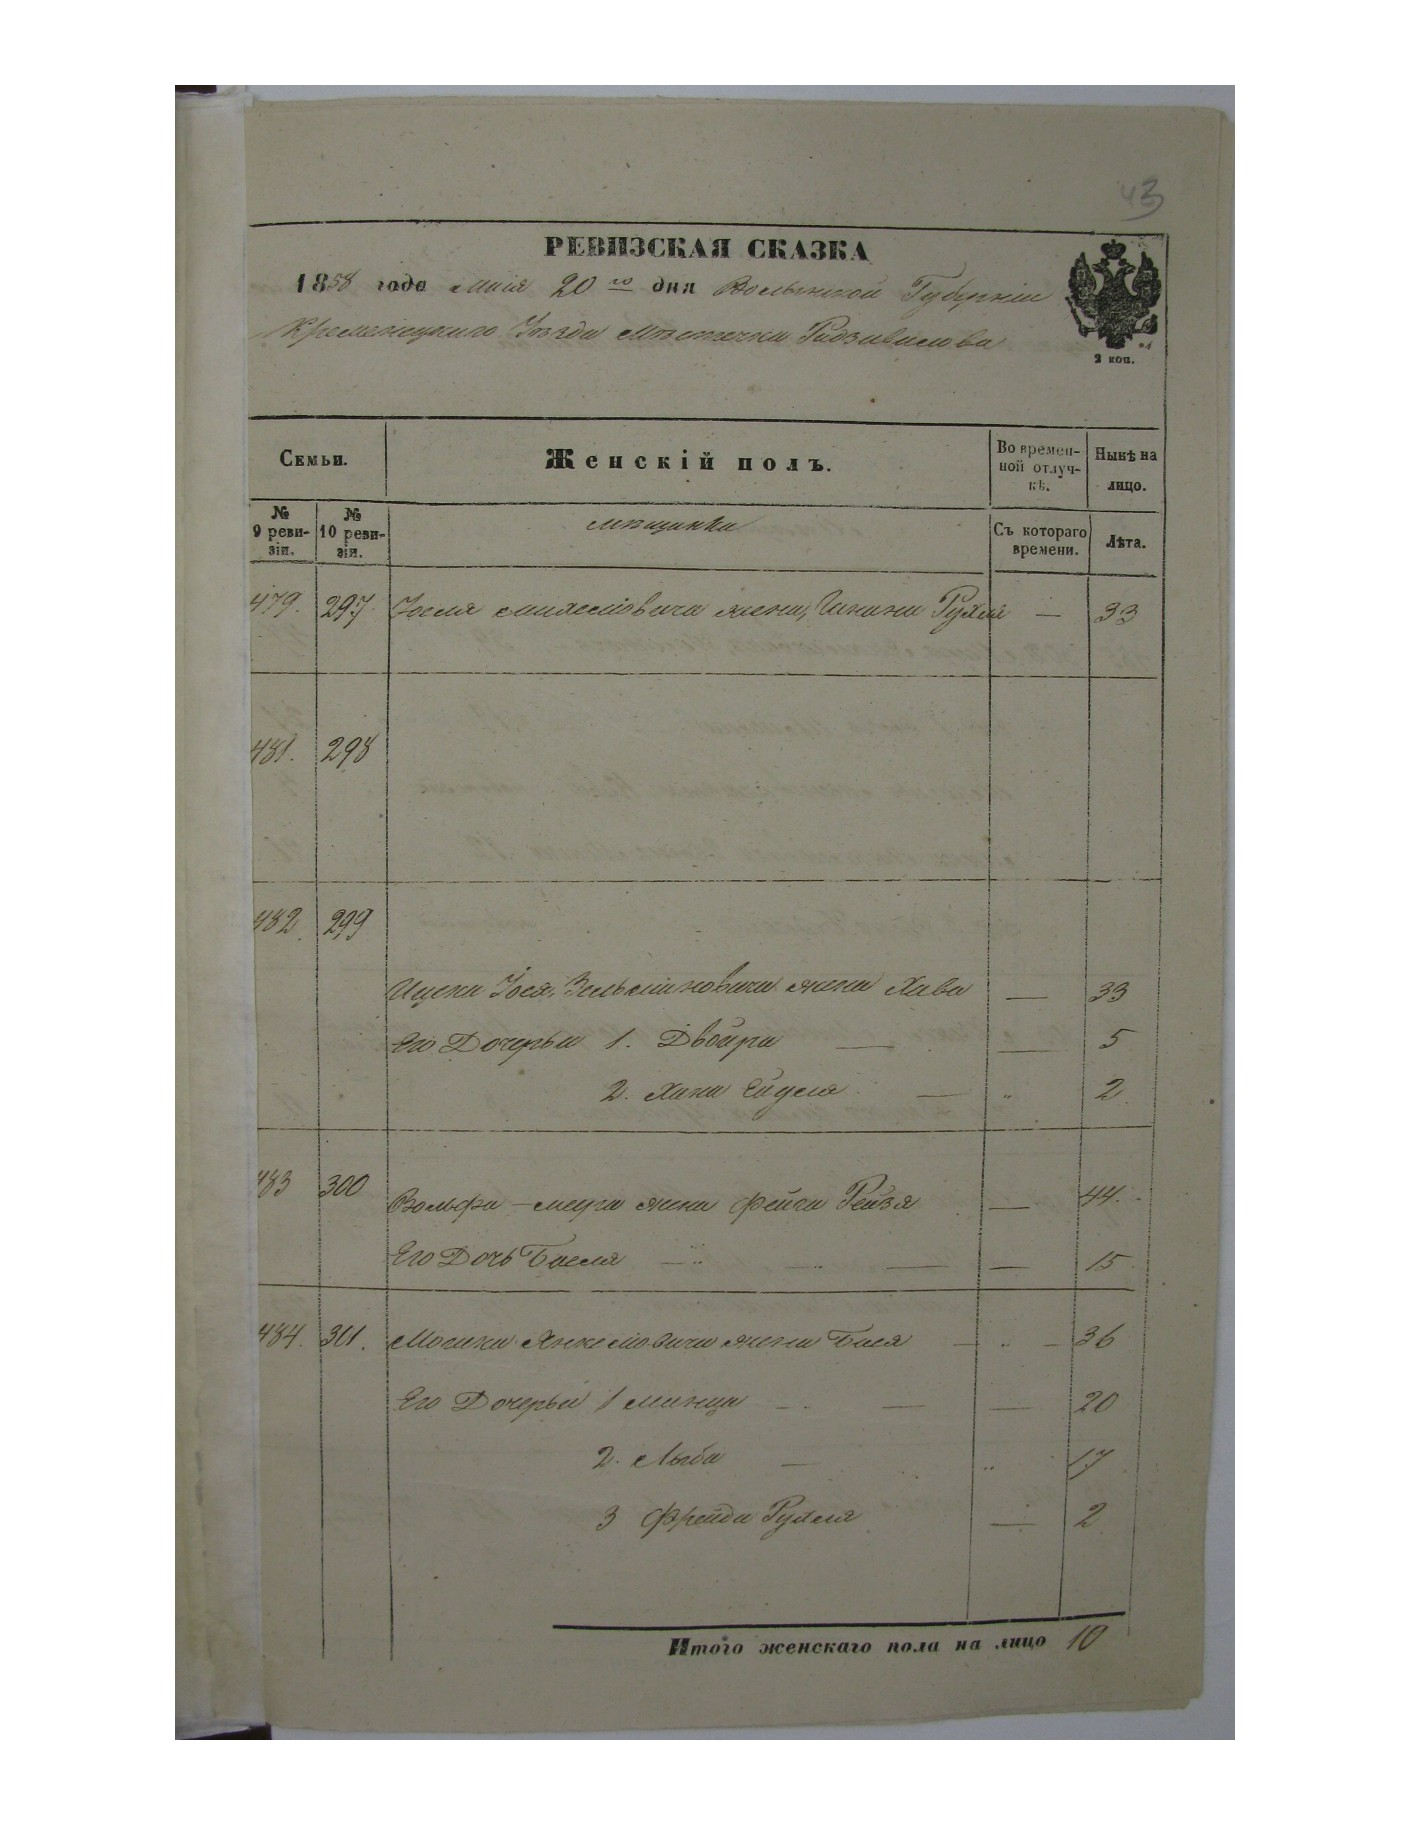 43
РЕВИЗСКАЯ СКАЗКА
1858 года Маія 20го дня Волынской Губерніи
Кременецкаго Уѣзда Мѣстечка Радзивилова
2 коп.
Семьи.
Женскій полъ.
Во времен-
ной отлуч-
кѣ.
Нынѣ на
лицо.
№
9 реви-
зіи.
№
10 реви-
зіи.
мѣщанки
Съ котораго
времени.
Лѣта.
479. 297 Іоселя жена, Рухля — 33
481. 298
482. 299
Ицска Іося Зельмановича жена Хава — 33
Его Дочерьи 1. Двойра — — 5
2. Хана Ейдля — " 2
483 300 Вольфа — жена Фейга Рейзя — 44.
Его Дочь Бася — " — " — — 15
484. 301. Мошка Янкеловича жена Бася — " — 36
Его Дочерьи 1 Минца — — — 20
2. Лыба — " 17
3 Фрейда Рухля — 2
Итого женскаго пола на лицо 10